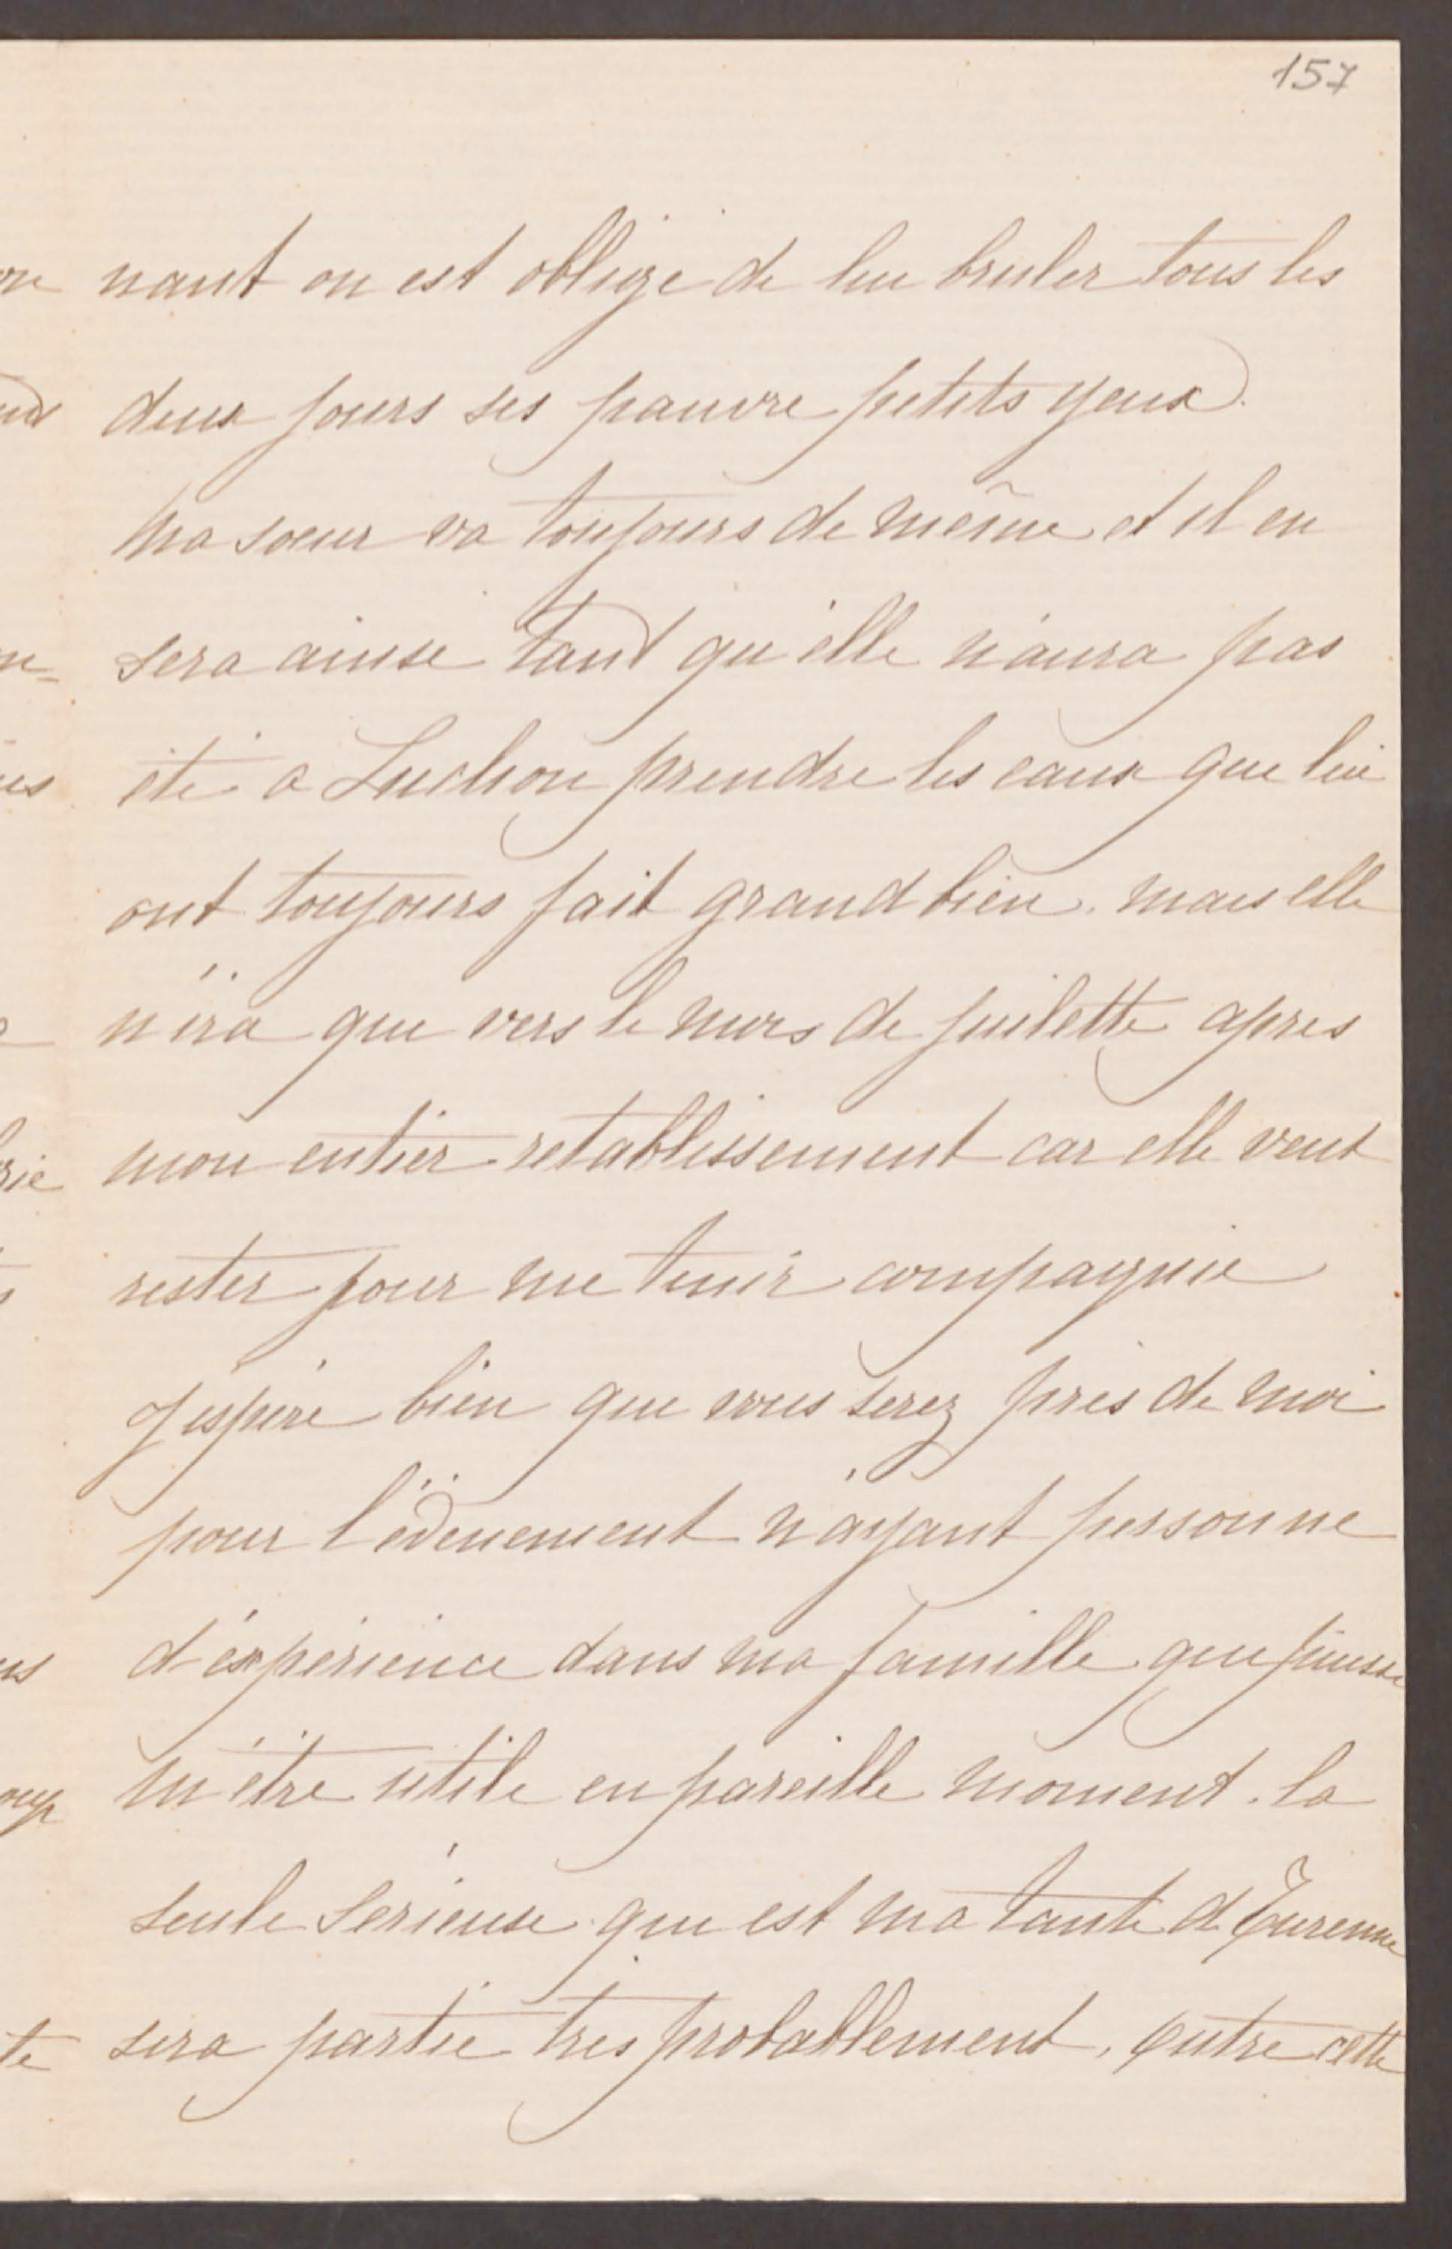 157
nant on est obligé de lui bruler tous les
deux jours ses pauvre petits yeux.
Ma soeur va toujours de même et il en
sera ainsi tant qu'elle n'aura pas
été a Luchon prendre les eaux que lui
ont toujours fait grand bien. mais elle
n'ira que vers le mois de juilette apres
mon entier retablissement car elle veut
rester pour me tenir compagnie
J'espére bien que vous serez prés de moi
pour l'évenement n'ayant personne
d'éxpérience dans ma famille que puisse
m'étre utile en pareille moment. la
seule sérieuse que est ma tante d Turenne
sera partie trés probablement, outre cette